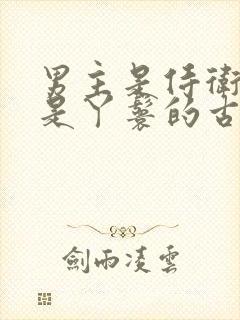 男主是侍衛
是丫鬟的古
劍雨凌雲